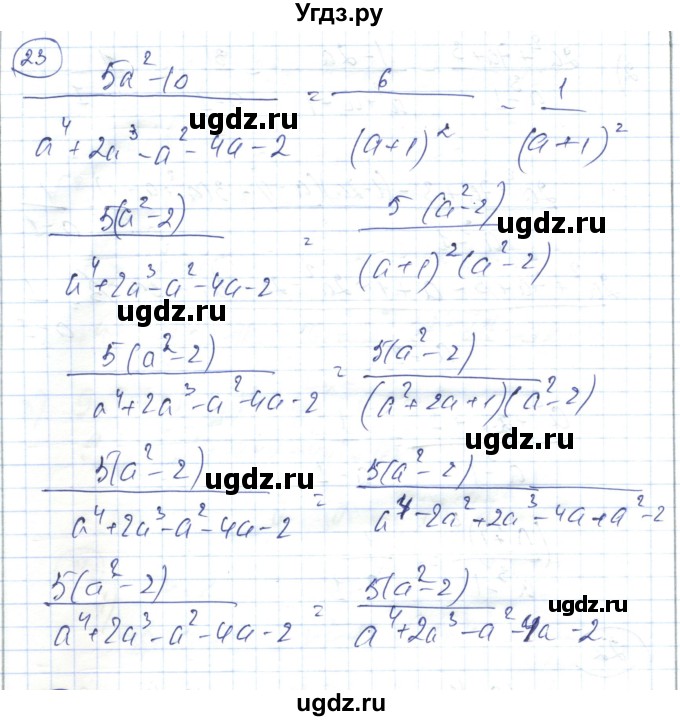 Угдз.ру
23
(5a² - 10)/(a⁴ + 2a³ - a² - 4a - 2) = 6/(a+1)² - 1/(a+1)²
ugdz.ru ugdz.ru
5(a² - 2)/(a⁴ + 2a³ - a² - 4a - 2) = 5(a² - 2)/((a+1)²(a² - 2))
ugdz.ru ugdz.ru
5(a² - 2)/(a⁴ + 2a³ - a² - 4a - 2) = 5(a² - 2)/((a² + 2a + 1)(a² - 2))
ugdz.ru ugdz.ru
5(a² - 2)/(a⁴ + 2a³ - a² - 4a - 2) = 5(a² - 2)/(a⁴ - 2a² + 2a³ - 4a + a² - 2)
ugdz.ru ugdz.ru
5(a² - 2)/(a⁴ + 2a³ - a² - 4a - 2) = 5(a² - 2)/(a⁴ + 2a³ - a² - 4a - 2)
ugdz.ru ugdz.ru
ugdz.ru